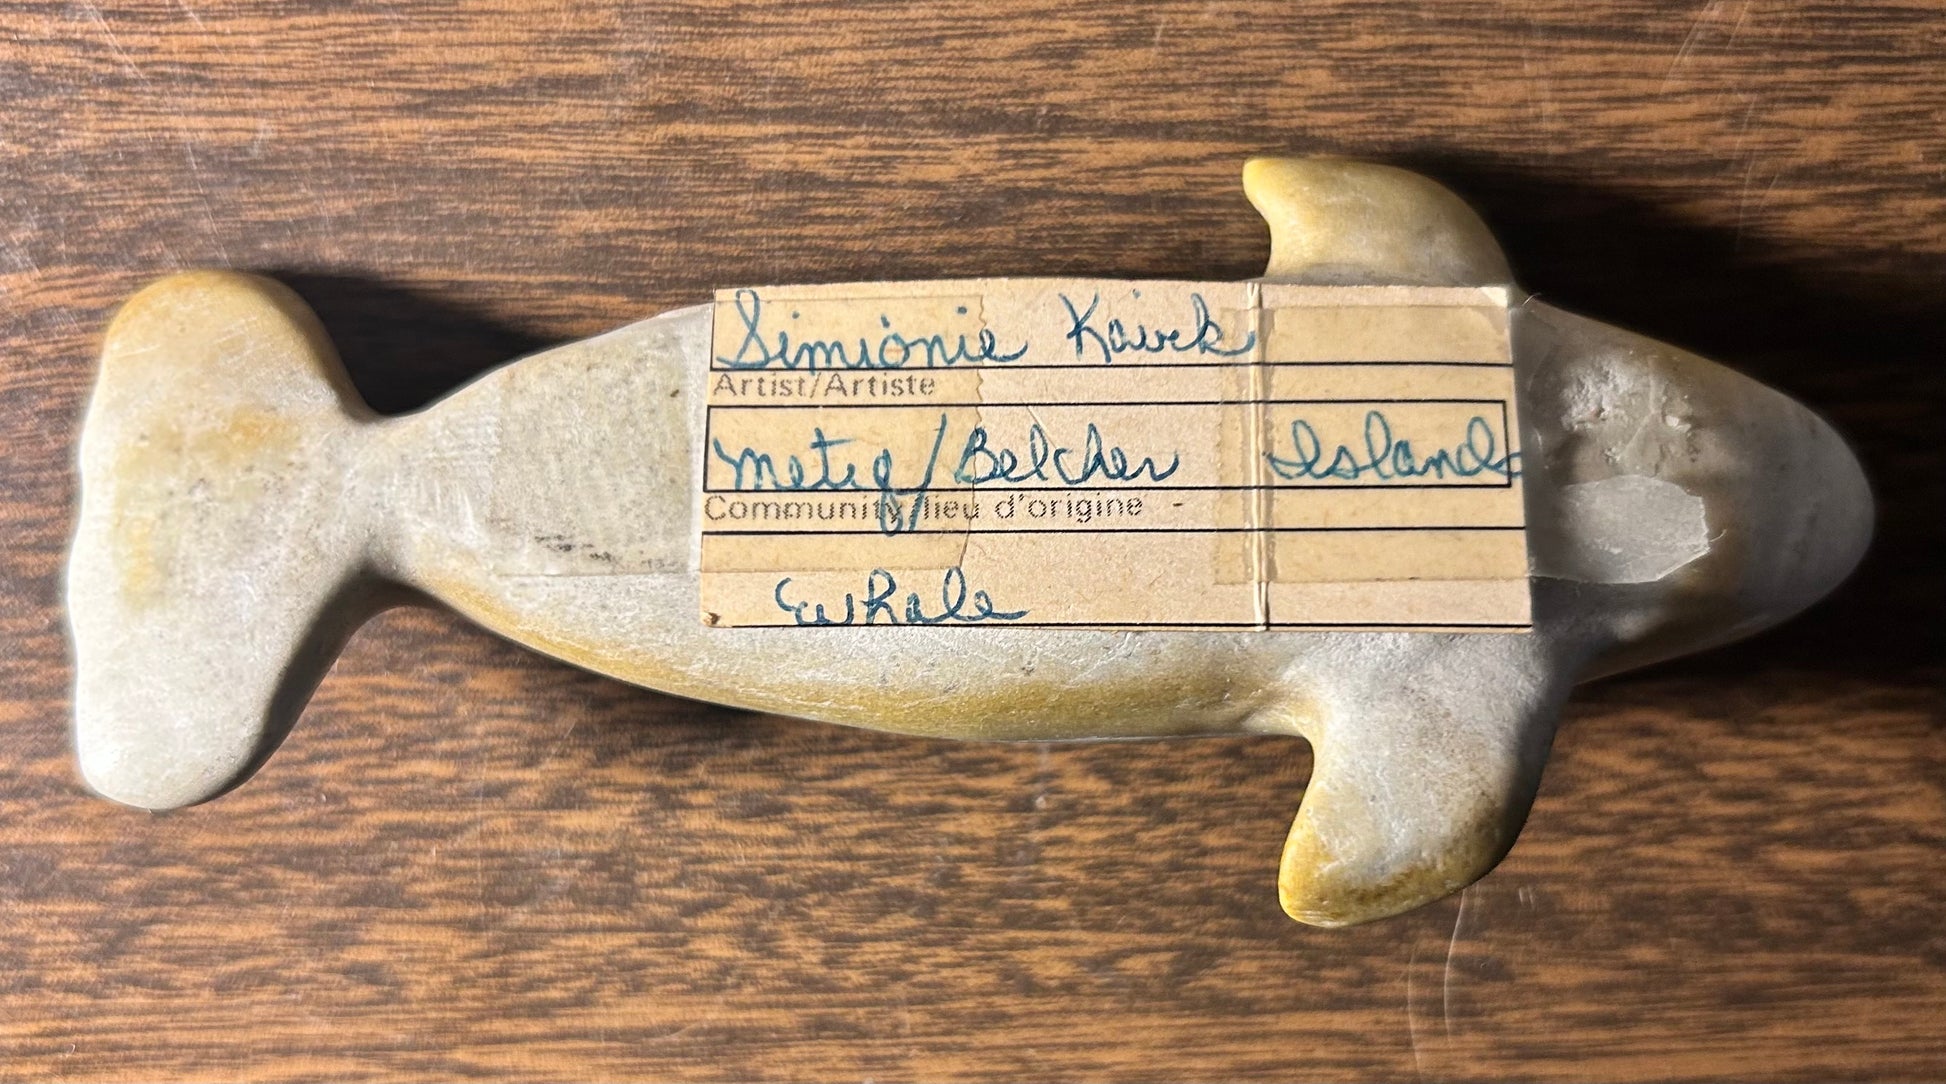 Simionie Kavek
Artist/Artiste
Meteq/Belcher Islands
Community/lieu d'origine -
Whale